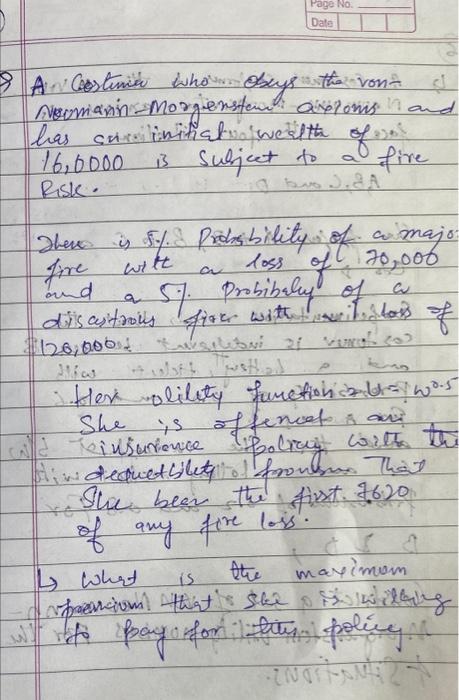 Page No.
Date
A Costumer who obeys the von-
Neumann-Morgenstern axioms and
has an initial wealth of
16,0000 is subject to a fire
Risk.
There is 5% Probability of a major
fire with a loss of 70,000
and a 5% Probibaly of a
disastrous fire with a loss of
120,000.
Her utility function is U = W^0.5
She is offered an
insurance policy with the
deductibility provision That
She bear the first 7620
of any fire loss.
↳ What is the maximum
premium that she is willing
to pay for this policy